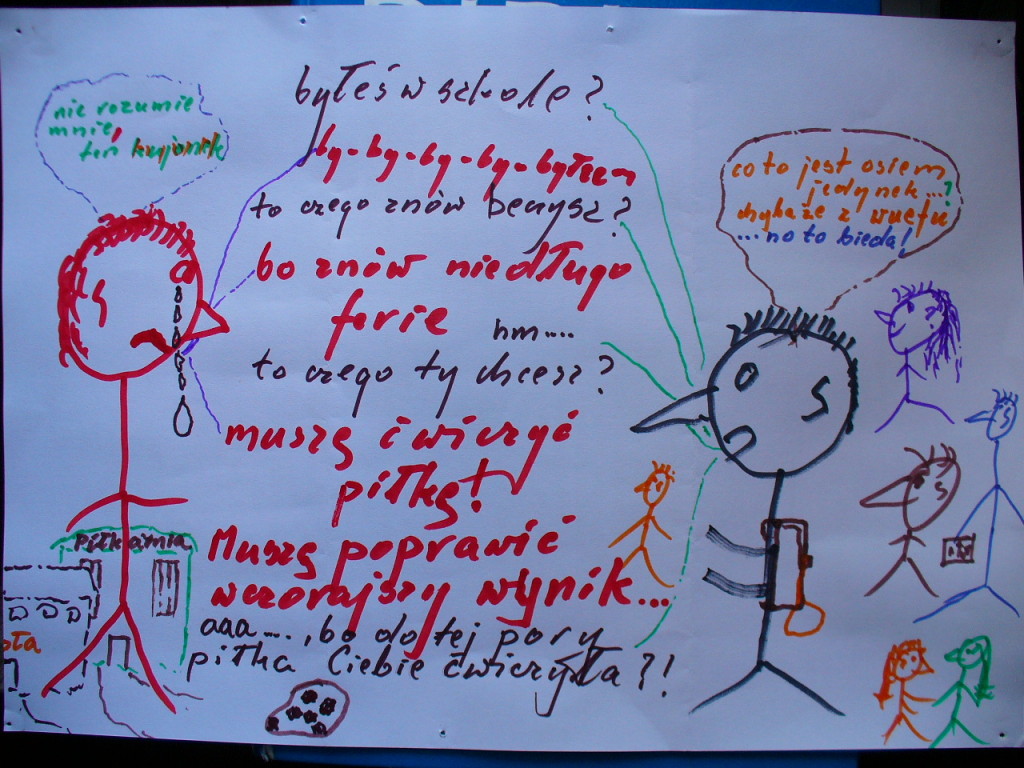 nie rozumie
mnie,
ten kujonik
byłeś w szkole?
by-by-by-by-byłem
to czego znów beczysz?
bo znów niedługo
ferie
hm....
to czego ty chcesz?
muszę ćwiczyć
piłkę!
Muszę poprawić
wczorajszy wynik...
aaa...., bo do tej pory
piłka Ciebie ćwiczyła?!
co to jest osiem
jedynek...?
chyba że z wuefu
...no to bieda!
piłkarnia